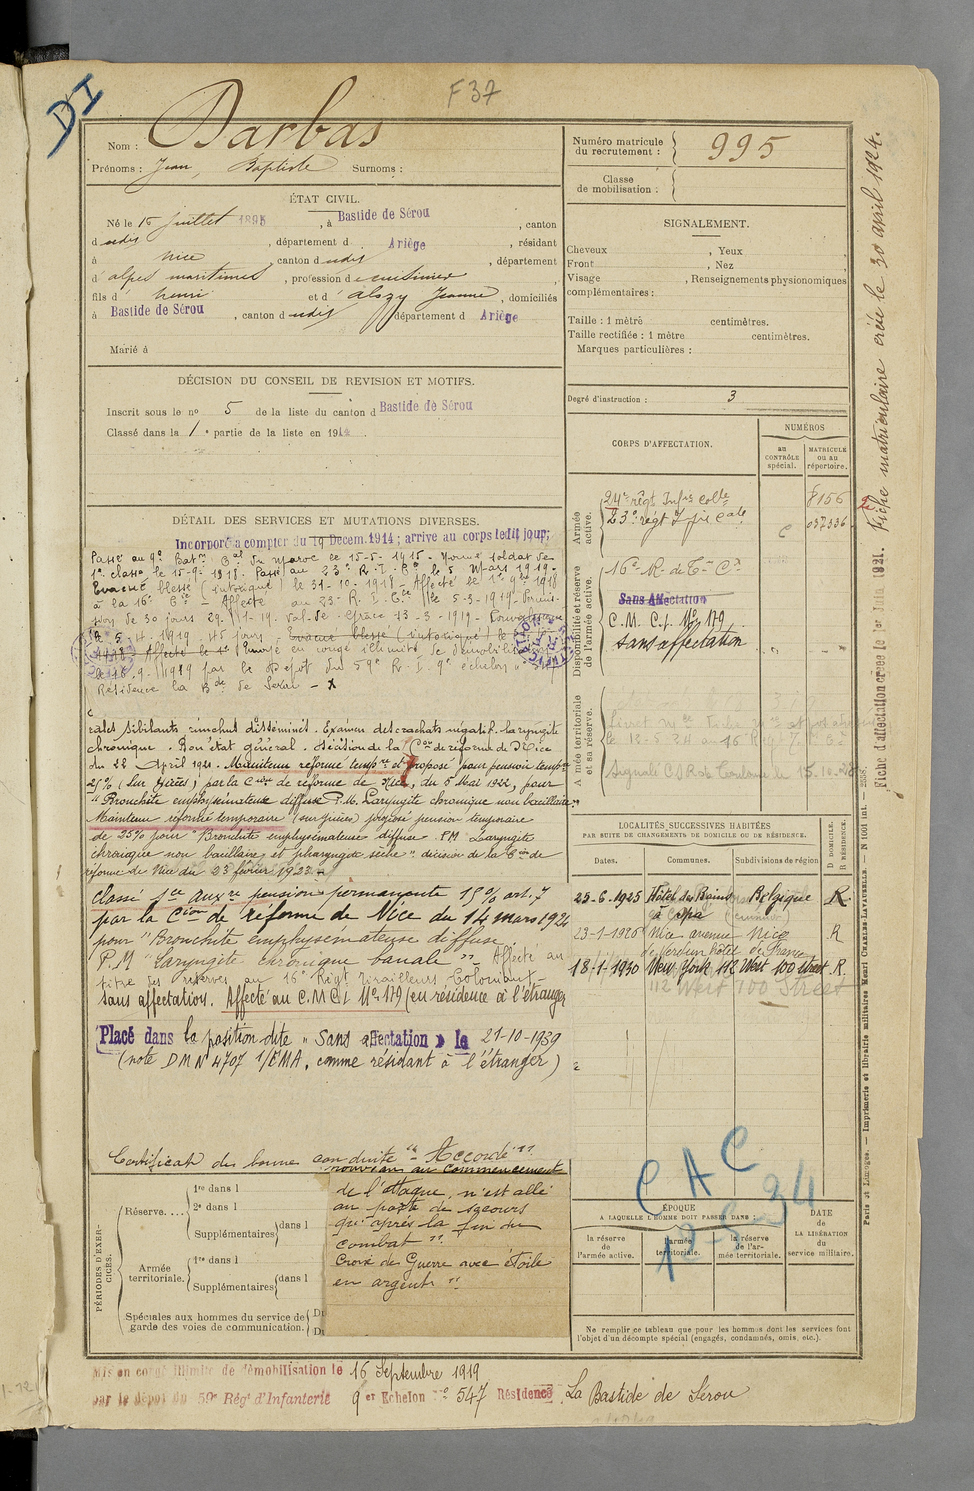 DI
F 37
Nom : Darbas
Prénoms : Jean, Baptiste Surnoms :
Numéro matricule du recrutement : 995
Classe de mobilisation :
ÉTAT CIVIL.
Né le 15 Juillet 1895, à Bastide de Sérou, canton
d udit, département d Ariège, résidant
à Nice, canton d udit, département
d alpes maritimes, profession d cuisinier
fils d henri et d Alozy Jeanne, domiciliés
à Bastide de Sérou, canton d udit département d Ariège
Marié à
SIGNALEMENT.
Cheveux , Yeux
Front , Nez
Visage , Renseignements physionomiques
complémentaires :
Taille : 1 mètre centimètres.
Taille rectifiée : 1 mètre centimètres.
Marques particulières :
DÉCISION DU CONSEIL DE REVISION ET MOTIFS.
Inscrit sous le no 5 de la liste du canton d Bastide de Sérou
Classé dans la 1 e partie de la liste en 1914.
Degré d'instruction : 3
CORPS D'AFFECTATION.
NUMÉROS
au CONTRÔLE spécial.
MATRICULE ou au répertoire.
Armée active.
24e régt Infie Colle 8156
23e régt
Disponibilité et réserve de l'armée active.
16e R. de T
Sans Affectation
C. M. C. I. No 179
sans affectation
Armée territoriale et sa réserve.
DÉTAIL DES SERVICES ET MUTATIONS DIVERSES.
Incorporé à compter du 19 Décem. 1914 ; arrivé au corps ledit jour;
Passé au 9e Baton Cal du Maroc le 15-5-1915. Nommé soldat de
1e classe le 15-9-1918. Passé au 23e R. I. Cle le 5 Mars 1919.
Evacué blessé (intoxiqué) le 31-10-1918 - Affecté le
à la 16e Cie - Affecté au 23e R. I. Cle le 5-3-1919.
sion de 30 jours
par le Dépôt du 59e R. I. 9e échelon
Résidence la Bde de Serou - x
rales sibilants ronchus disséminés. Examen des crachats négatif. Laryngite
chronique. Bon état général. Décision de la Con de réforme de Nice
du 22 April 1921. Maintenu réformé tempre et proposé pour pension tempre
25% (sur pièces) par la Cion de réforme de Nice, du 5 Mai 1922, pour
"Bronchite emphysémateuse diffuse P. M. Laryngite chronique non bacillaire"
Maintenu réformé temporaire (sur pièces) proposé pension temporaire
de 25% pour "Bronchite emphysémateuse diffuse. P.M. Laryngite
chronique non bacillaire et pharyngite sèche" décision de la Cion de
réforme de Nice du 23 février 1923
Classé sce auxre pension permanente 15% art. 7
par la Cion de réforme de Nice du 14 mars 1924
pour "Bronchite emphysémateuse diffuse
P.M "Laryngite chronique banale" Affecté au
titre des réserves au 16e Régt Tirailleurs Coloniaux
sans affectation. Affecté au C.M.C.I No 179 (en résidence à l'étranger
Placé dans la position dite "Sans affectation" le 21-10-1939
(note DMN 4707 1/EMA, comme résidant à l'étranger)
Certificat de bonne conduite "Accordé"
LOCALITÉS SUCCESSIVES HABITÉES
PAR SUITE DE CHANGEMENTS DE DOMICILE OU DE RÉSIDENCE.
Dates. Communes. Subdivisions de région
D. DOMICILE. R. RÉSIDENCE.
25-6-1925 Hôtel des Bains à Spa Belgique R.
23-1-1926 Nice avenue de Verdun hôtel de France Nice R
18-1-1930 New York 112 West 100 Street R.
112 West 100 Street
CAC
12-5-34
PÉRIODES D'EXERCICES.
Réserve....
1re dans l
2e dans l
Supplémentaires dans l
Armée territoriale.
1re dans l
Supplémentaires dans l
Spéciales aux hommes du service de garde des voies de communication.
au commencement
de l'attaque, n'est allé
au poste de secours
qu'après la fin du
combat".
Croix de Guerre avec étoile
en argent"
ÉPOQUE
A LAQUELLE L'HOMME DOIT PASSER DANS :
la réserve de l'armée active.
l'armée territoriale.
la réserve de l'armée territoriale.
DATE de LA LIBÉRATION du service militaire.
Ne remplir ce tableau que pour les hommes dont les services font
l'objet d'un décompte spécial (engagés, condamnés, omis, etc.).
Mis en congé illimité de démobilisation le 16 Septembre 1919
par le dépôt du 59e Régt d'Infanterie 9er Echelon no 547 Résidence La Bastide de Sérou
Fiche matriculaire créée le 30 avril 1924.
Fiche d'affectation créée le 1er Juin 1921.
Paris et Limoges. — Imprimerie et librairie militaires Henri CHARLES-LAVAUZELLE. — N 1001 int. — 2538.